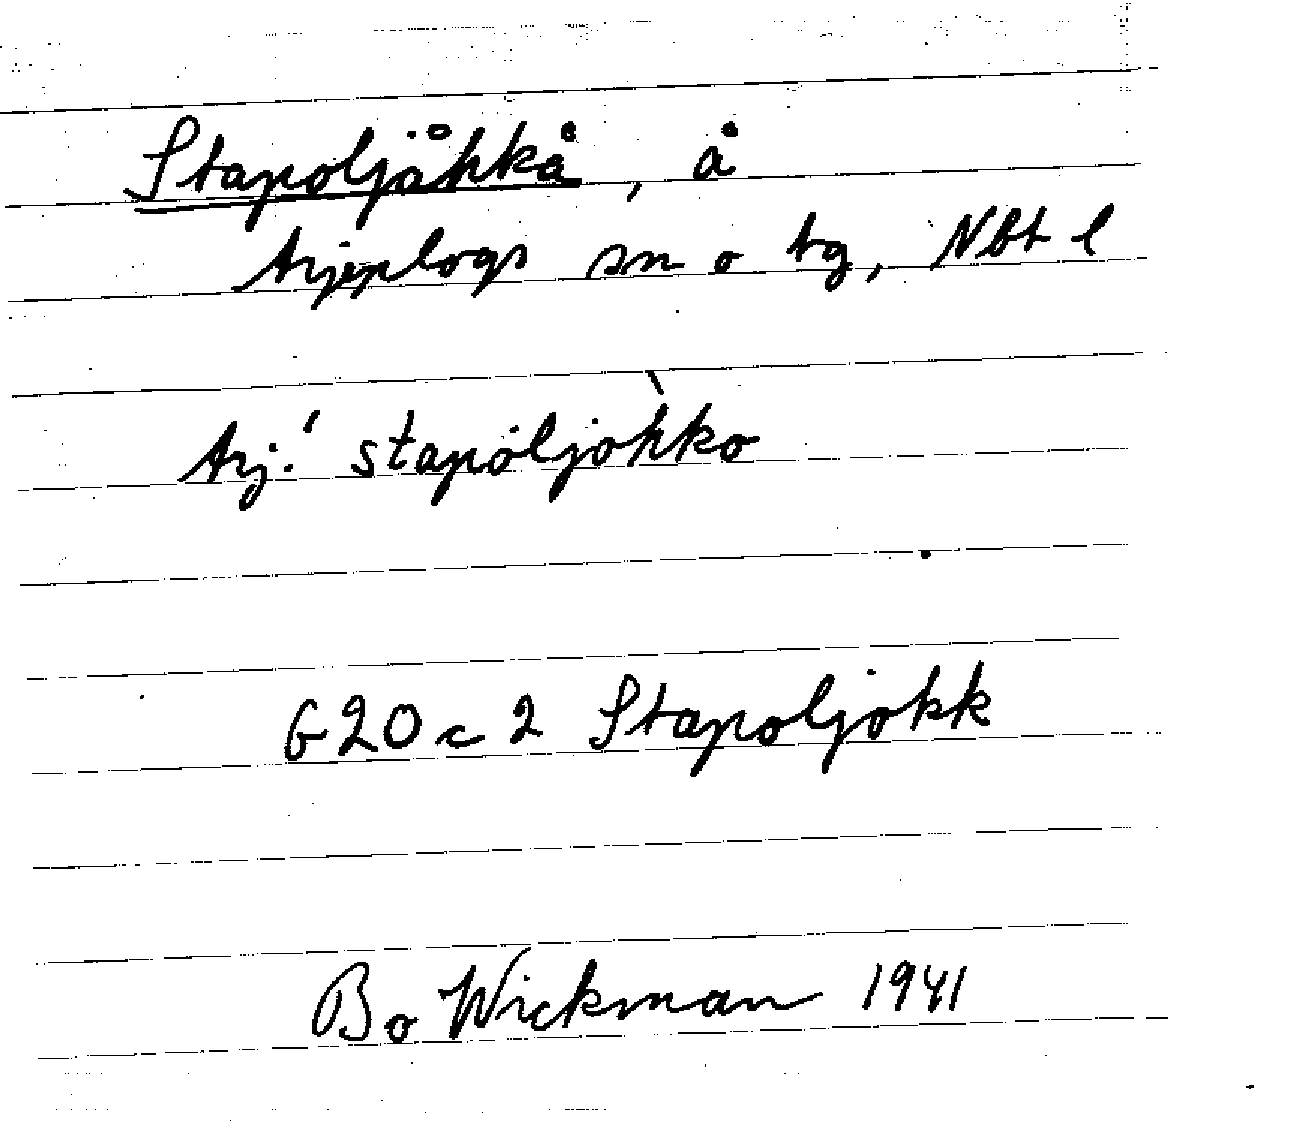 Stapoljåhkå, å
Arjeplogs sn o tg, Nbt l
Arj.' stapo̍ljòhko
G20 c 2 Stapoljokk
Bo Wickman 1941